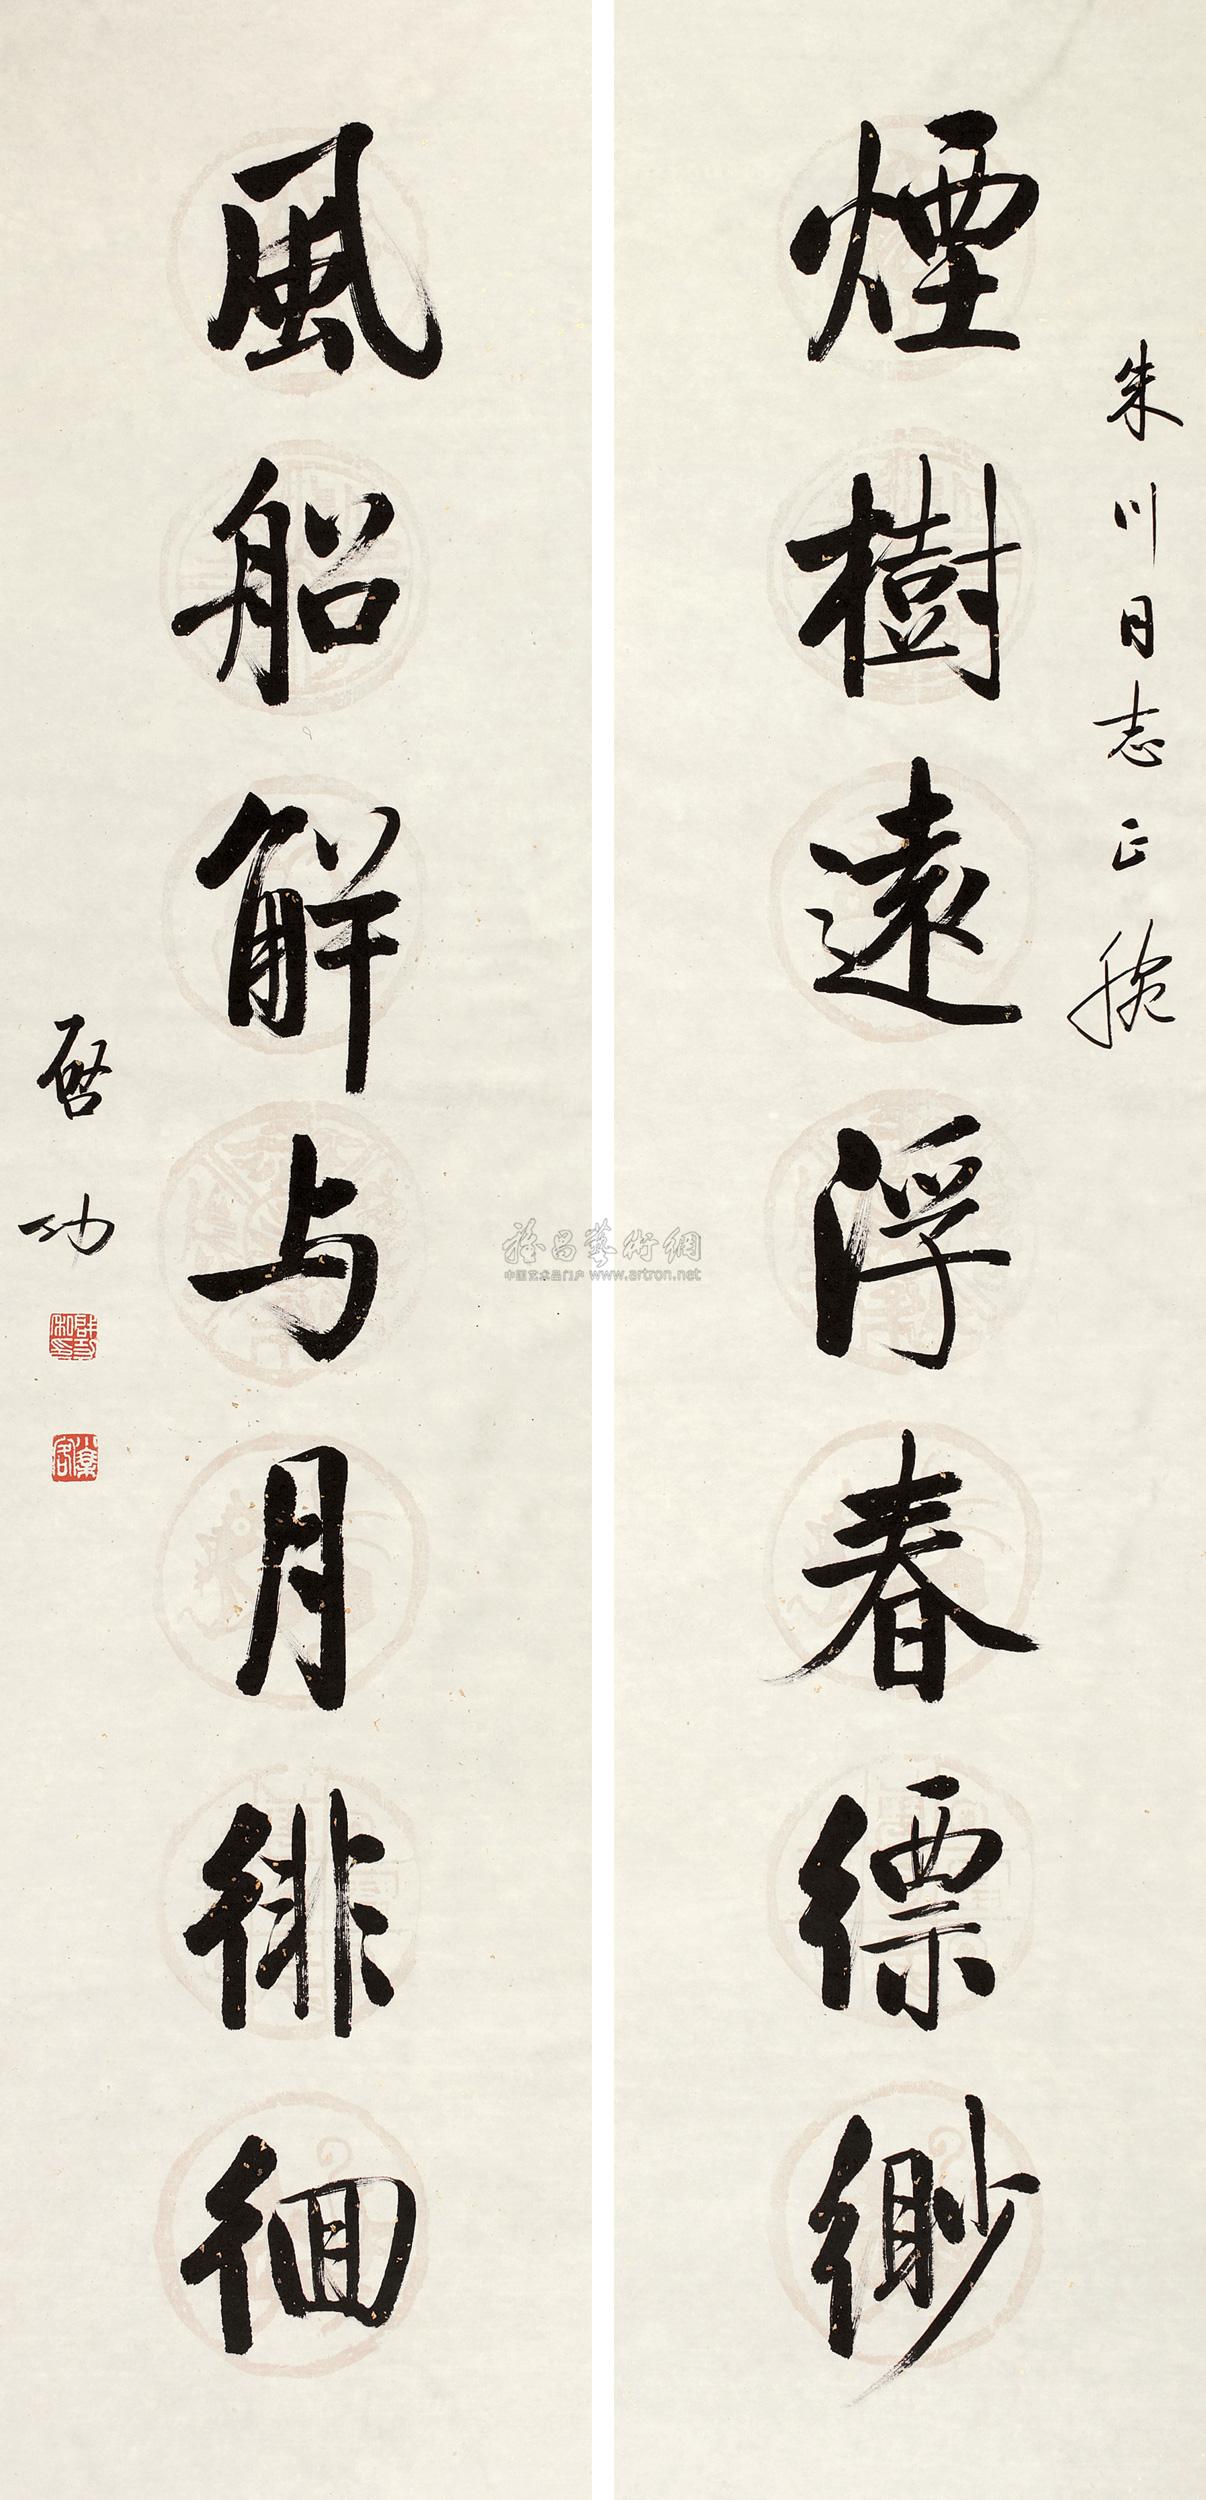 朱川同志正腕
煙樹遠浮春縹緲
風船解与月徘徊
启功
雅昌藝術網
中国艺术品门户 www.artron.net